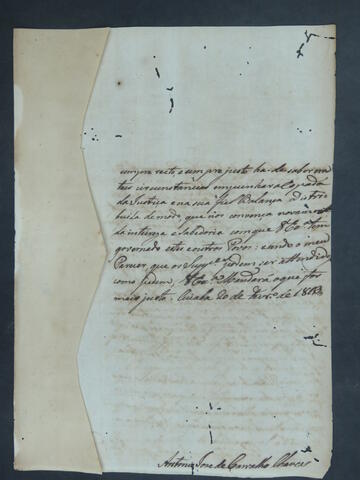 cumpre recto e sempre justo ha de saber em
taes circunstancias empunhar a Espada
da Justiça e na sua fiel Balança distri
builla de modo, que nos convença novam.te
da inteira e Sabedoria com que V Ex.a tem
governado estes e outros Povos: sendo o meu
Parecer que os Supp.es podem ser attendidos
como pedem, V Ex.a Mandará o que for
mais justo. Cuiabá 20 de de 18
Antonio Jose de Carvalho Chaves